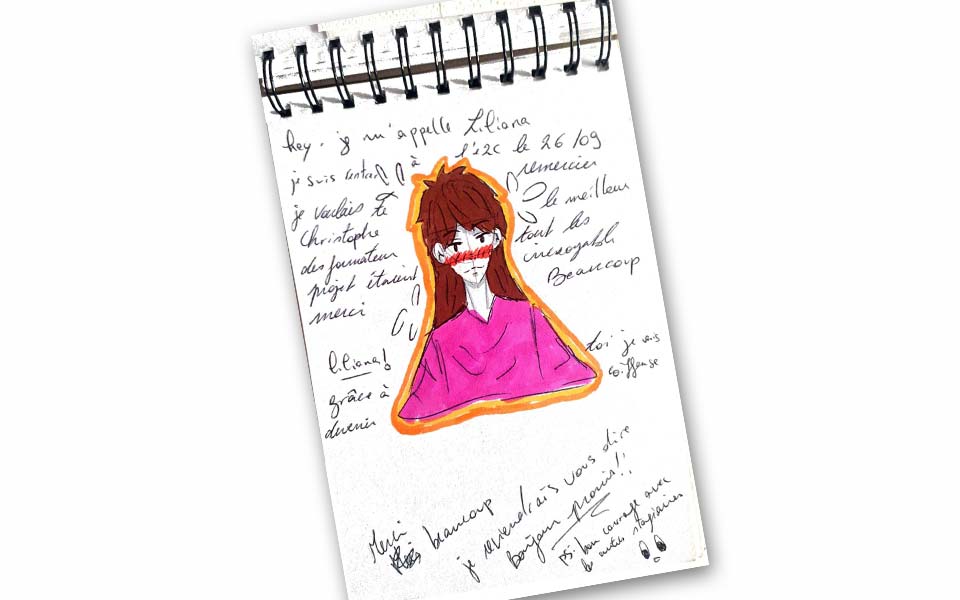 hey. je m'appelle Liliana
je suis rentré à l'e2c le 26/09
je voulais te remercier
Christophe le meilleur
des formateur tout les
projet étaient incroyable
merci Beaucoup
liliana!
grâce à toi je vais
devenir coiffeuse
Merci beaucoup
je reviendrais vous dire
Bonjour promis!!
PS: bon courage avec
les autres stagiaires